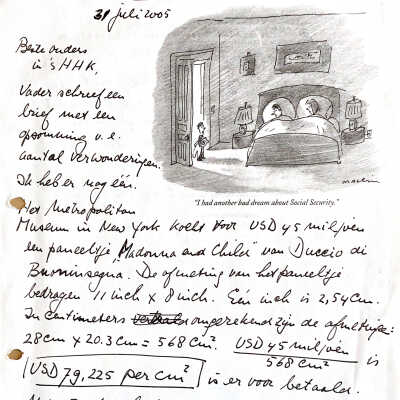 31 juli 2005
Beste ouders
in 's HHK,
Vader schreef een
brief met een
opsomming v.e.
aantal verwonderingen.
Ik heb er nog één.
"I had another bad dream about Social Security."
Het Metropolitan
Museum in New York koelt voor USD 45 miljoen
een paneeltje, "Madonna and Child" van Duccio di
Buoninsegna. De afmeting van het paneeltje
bedragen 11 inch x 8 inch. Eén inch is 2,54 cm.
In centimeters omgerekend zijn de afmetingen:
28 cm x 20.3 cm = 568 cm². USD 45 miljoen / 568 cm² is
USD 79,225 per cm² is er voor betaald.